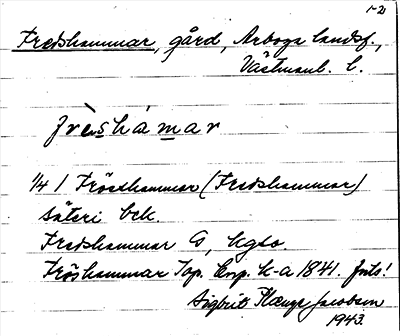 1-2
Fredshammar, gård, Arboga landsf.,
Västmanl. l.
frèshámar
1/4 1 Frösthammar (Fredshammar)
säteri bek.
Fredshammar G, hgso.
Fröshammar Top. korp. k-a 1841. Finls!
Sigbrit Plænge Jacobson
1943.